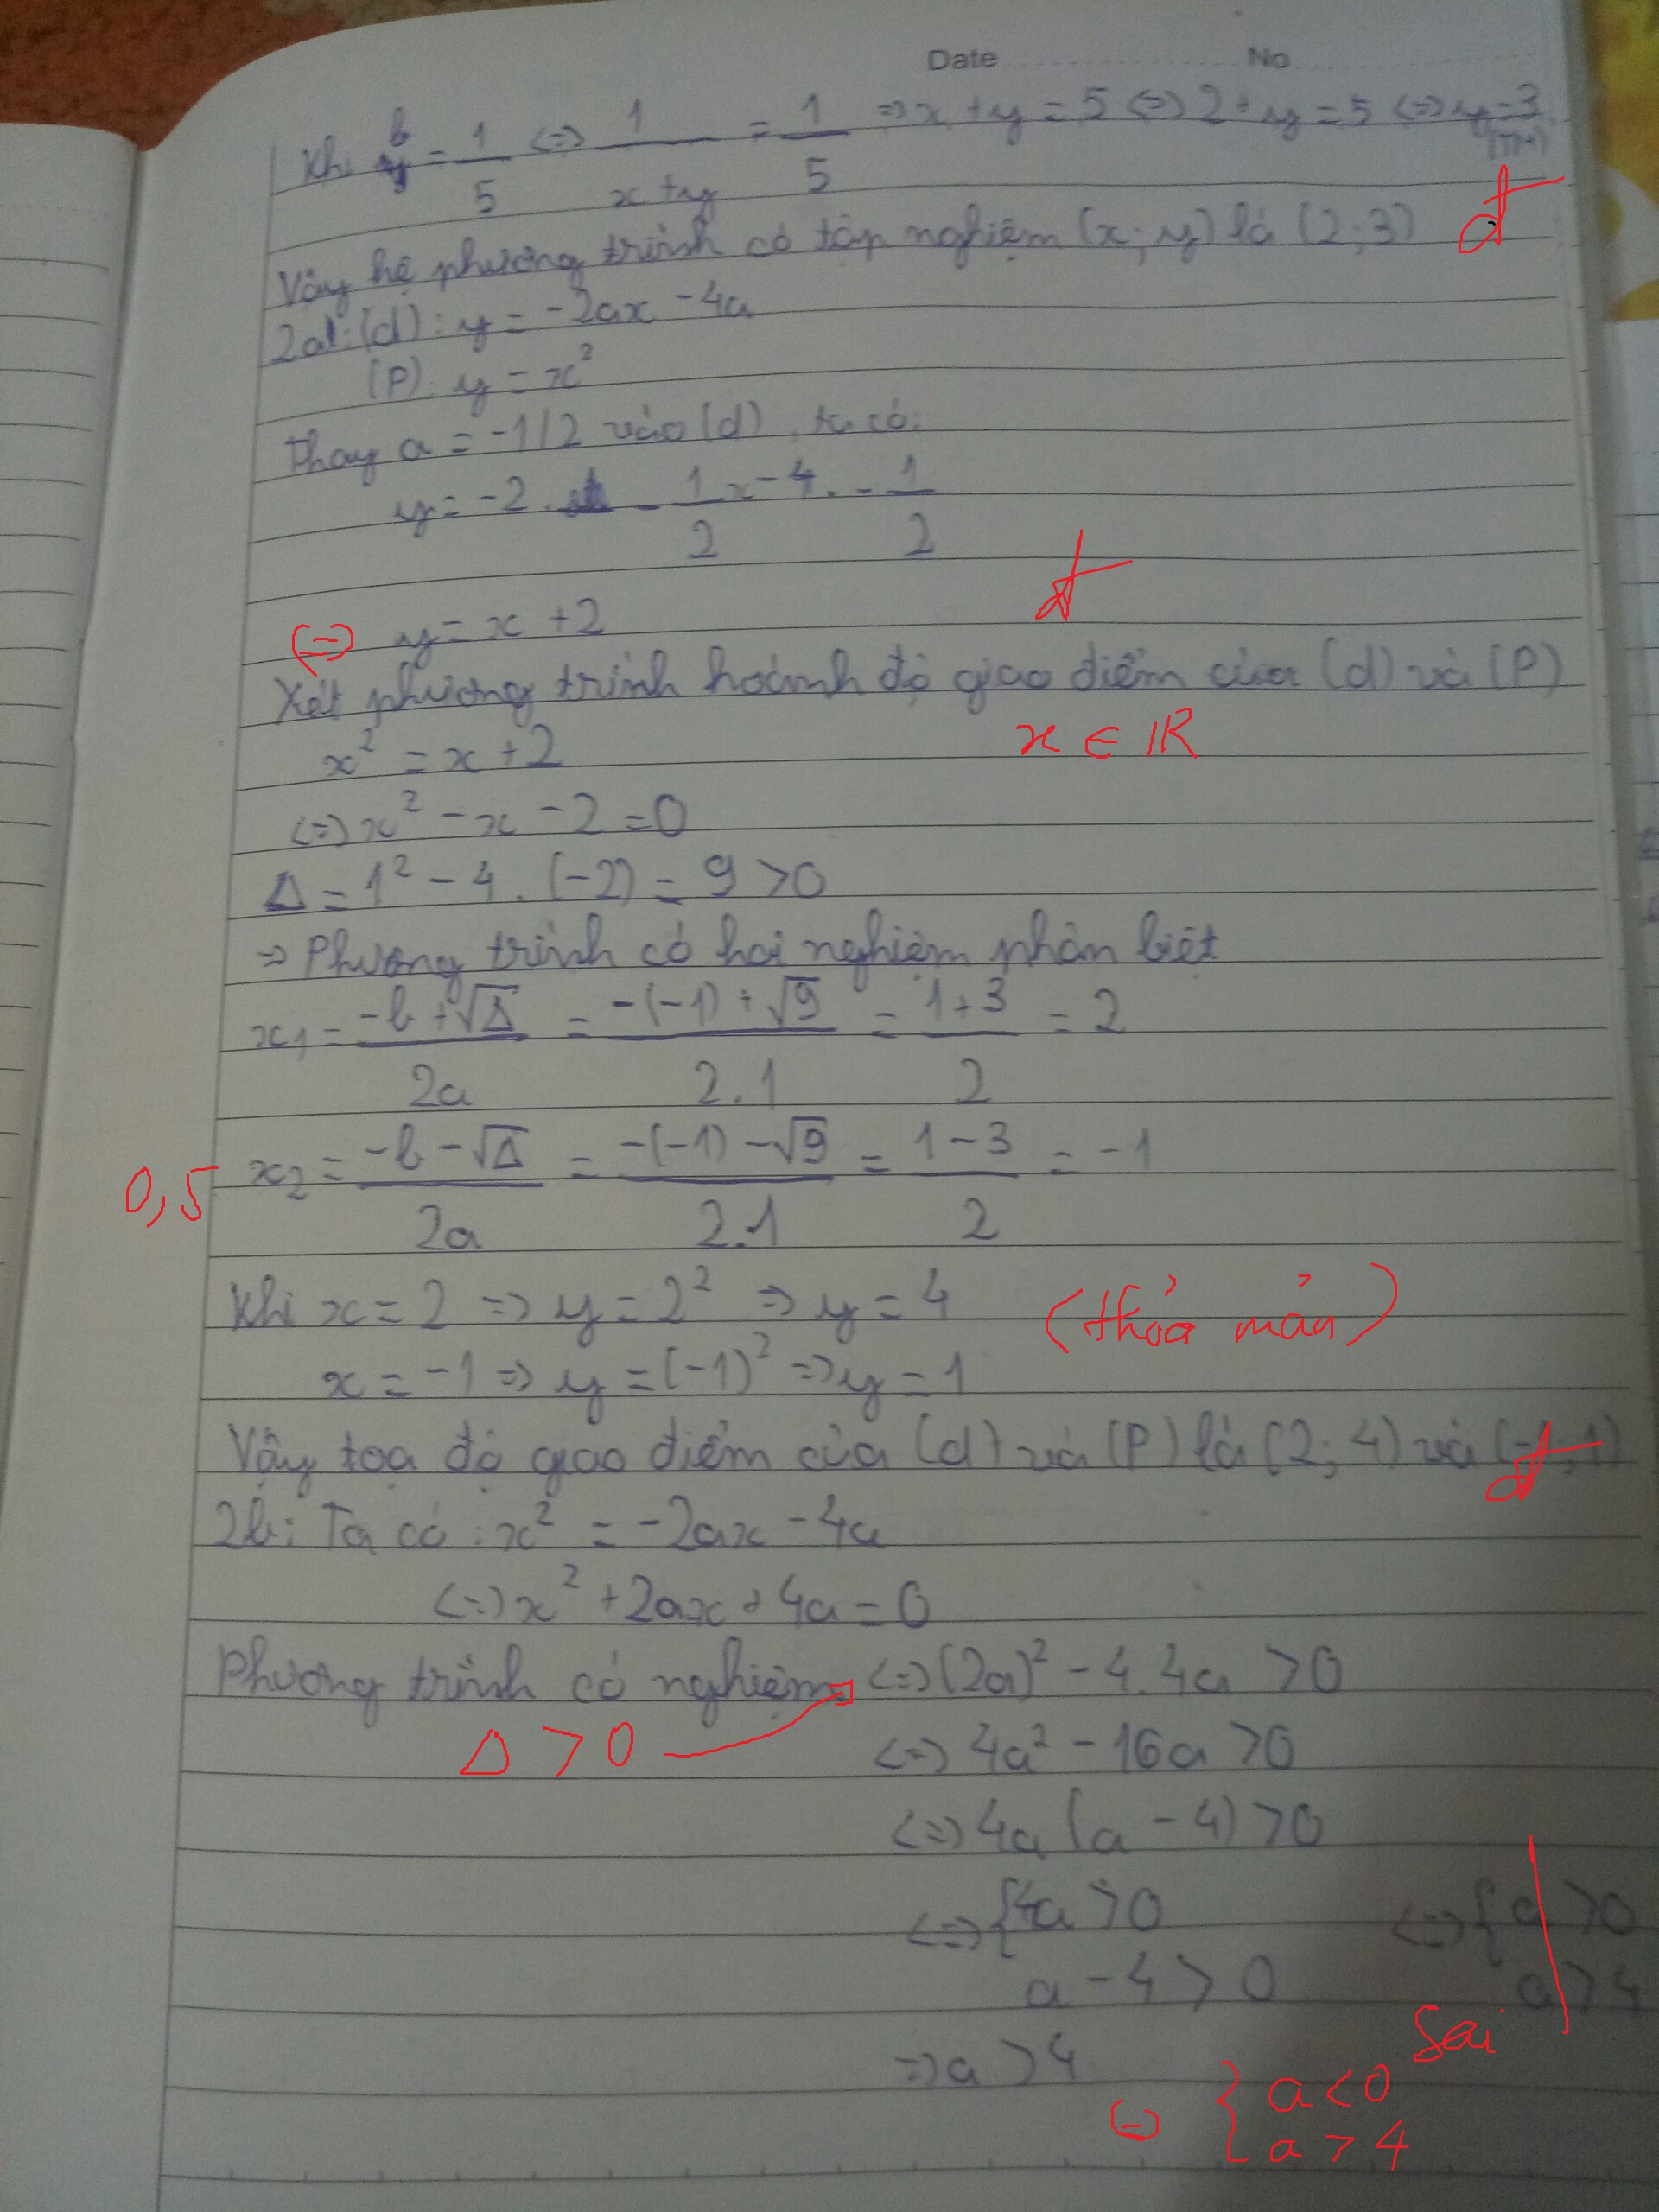 Date No
Khi b = 1/5 <=> 1/(x+y) = 1/5 => x + y = 5 <=> 2 + y = 5 <=> y = 3
(TM)
Vậy hệ phương trình có tập nghiệm (x; y) là (2; 3) đ
2a: (d): y = -2ax - 4a
(P): y = x²
Thay a = -1/2 vào (d), ta có:
y = -2. -1/2 x - 4. -1/2
đ
(=) y = x + 2
Xét phương trình hoành độ giao điểm của (d) và (P)
x² = x + 2 x ∈ R
<=> x² - x - 2 = 0
Δ = 1² - 4 . (-2) = 9 > 0
=> Phương trình có hai nghiệm phân biệt
x₁ = (-b + √Δ)/2a = (-(-1) + √9)/2.1 = (1 + 3)/2 = 2
0,5 x₂ = (-b - √Δ)/2a = (-(-1) - √9)/2.1 = (1 - 3)/2 = -1
Khi x = 2 => y = 2² => y = 4 (thỏa mản)
x = -1 => y = (-1)² => y = 1
Vậy tọa độ giao điểm của (d) và (P) là (2; 4) và (-1; 1) đ
2b: Ta có: x² = -2ax - 4a
<=> x² + 2ax + 4a = 0
Phương trình có nghiệm <=> (2a)² - 4.4a > 0
Δ > 0 <=> 4a² - 16a > 0
<=> 4a (a - 4) > 0
<=> { 4a > 0 <=> { a > 0
a - 4 > 0 a > 4
Sai
=> a > 4
(=) { a < 0
a > 4